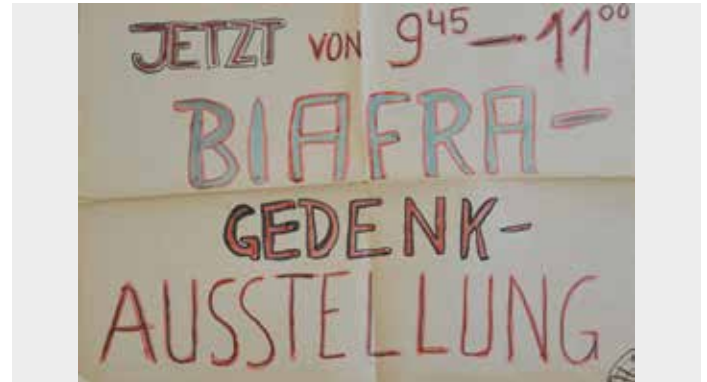 JETZT VON 9⁴⁵—11⁰⁰
BIAFRA-
GEDENK-
AUSSTELLUNG